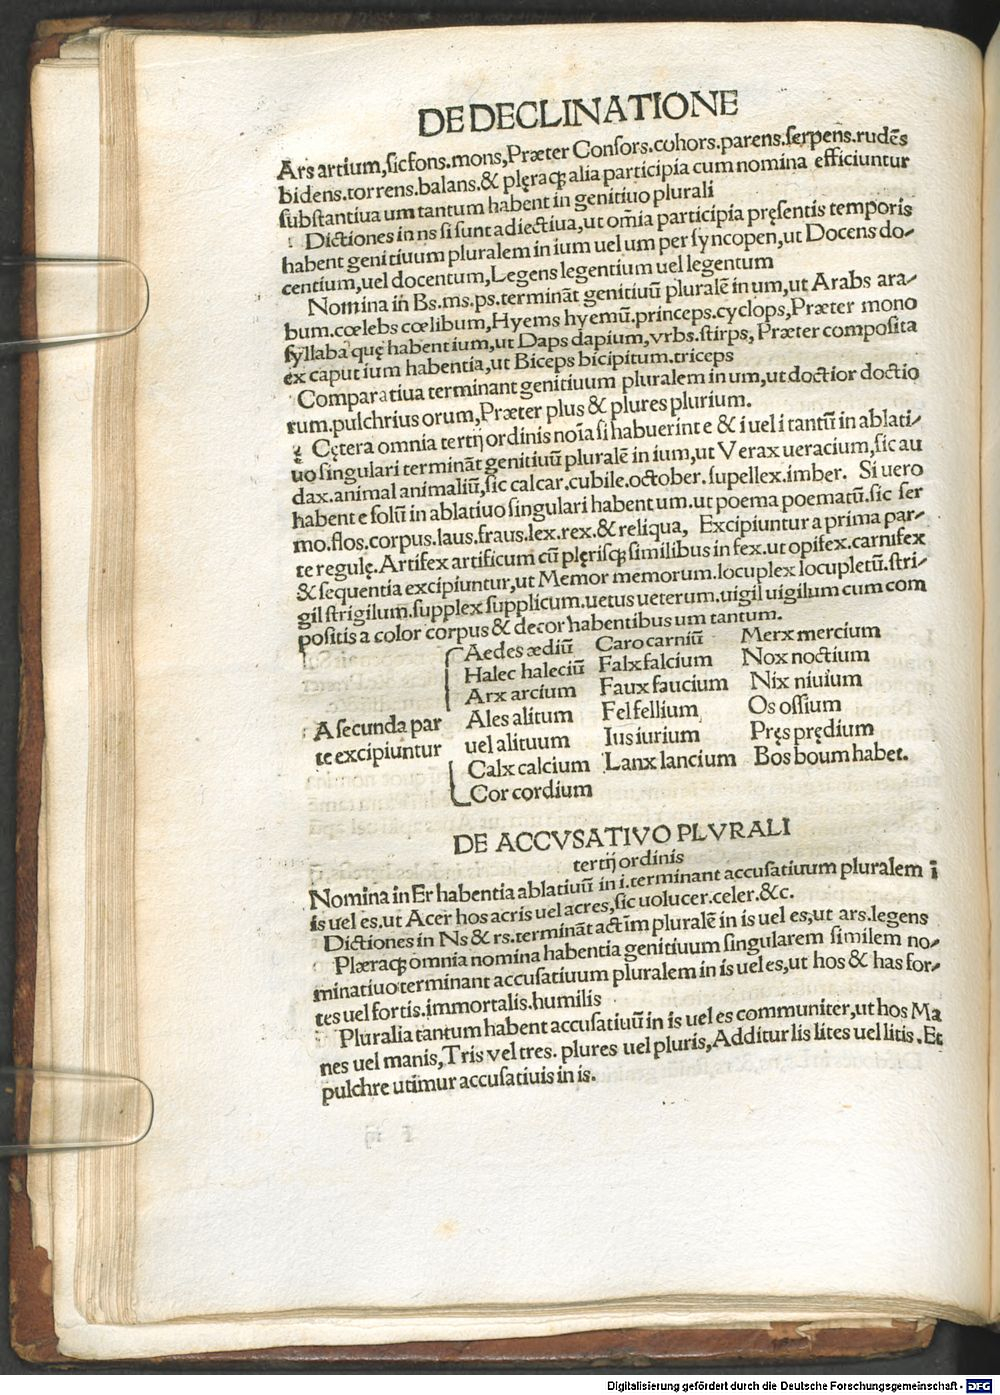 DE DECLINATIONE
Ars artium,ſic fons.mons,Præter Conſors.cohors.parens.ſerpens.rudēs
bidens.torrens.balans.& plęraꝙ alia participia cum nomina efficiuntur
ſubſtantiua um tantum habent in genitiuo plurali
Dictiones in ns ſi ſunt adiectiua,ut om̄ia participia pręſentis temporis
habent genitiuum pluralem in ium uel um per ſyncopen,ut Docens do⸗
centium,uel docentum,Legens legentium uel legentum
Nomina in Bs.ms.ps.terminãt genitiuū pluralē in um,ut Arabs ara⸗
bum.cœlebs cœlibum,Hyems hyemū.princeps.cyclops,Præter mono
ſyllaba quę habent ium,ut Daps dapium,vrbs.ſtirps, Præter compoſita
ex caput ium habentia,ut Biceps bicipitum.triceps
Comparatiua terminant genitiuum pluralem in um,ut doctior doctio
rum.pulchrius orum,Præter plus & plures plurium.
Cętera omnia tertij ordinis nōia ſi habuerint e & i uel i tantū in ablati⸗
uo ſingulari terminãt genitiuū pluralē in ium,ut Verax ueracium,ſic au
dax.animal animaliū,ſic calcar.cubile.october.ſupellex.imber. Si uero
habent e ſolū in ablatiuo ſingulari habent um.ut poema poematū.ſic ſer
mo.flos.corpus.laus.fraus.lex.rex.& reliqua, Excipiuntur a prima par⸗
te regulę.Artifex artificum cū plęriſꝙ ſimilibus in fex.ut opifex.carnifex
& ſequentia excipiuntur,ut Memor memorum.locuplex locupletū.ſtri⸗
gil ſtrigilum.ſupplex ſupplicum.uetus ueterum.uigil uigilum cum com
poſitis a color corpus & decor habentibus um tantum.
Aedes ædiū Caro carniū Merx mercium
Halec haleciū Falx falcium Nox noctium
Arx arcium Faux faucium Nix niuium
A ſecunda par Ales alitum Fel fellium Os oſſium
te excipiuntur uel alituum Ius iurium Pręs prędium
Calx calcium Lanx lancium Bos boum habet.
Cor cordium
DE ACCVSATIVO PLVRALI
tertij ordinis
Nomina in Er habentia ablatiuū in i.terminant accuſatiuum pluralem ī
is uel es.ut Acer hos acris uel acres,ſic uolucer.celer.&c.
Dictiones in Ns & rs.terminãt actīm pluralē in is uel es,ut ars.legens
Plæraꝙ omnia nomina habentia genitiuum ſingularem ſimilem no⸗
minatiuo terminant accuſatiuum pluralem in is uel es,ut hos & has for⸗
tes uel fortis.immortalis.humilis
Pluralia tantum habent accuſatiuū in is uel es communiter,ut hos Ma
nes uel manis,Tris vel tres. plures uel pluris,Additur lis lites uel litis.Et
pulchre utimur accuſatiuis in is.
Digitalisierung gefördert durch die Deutsche Forschungsgemeinschaft - DFG